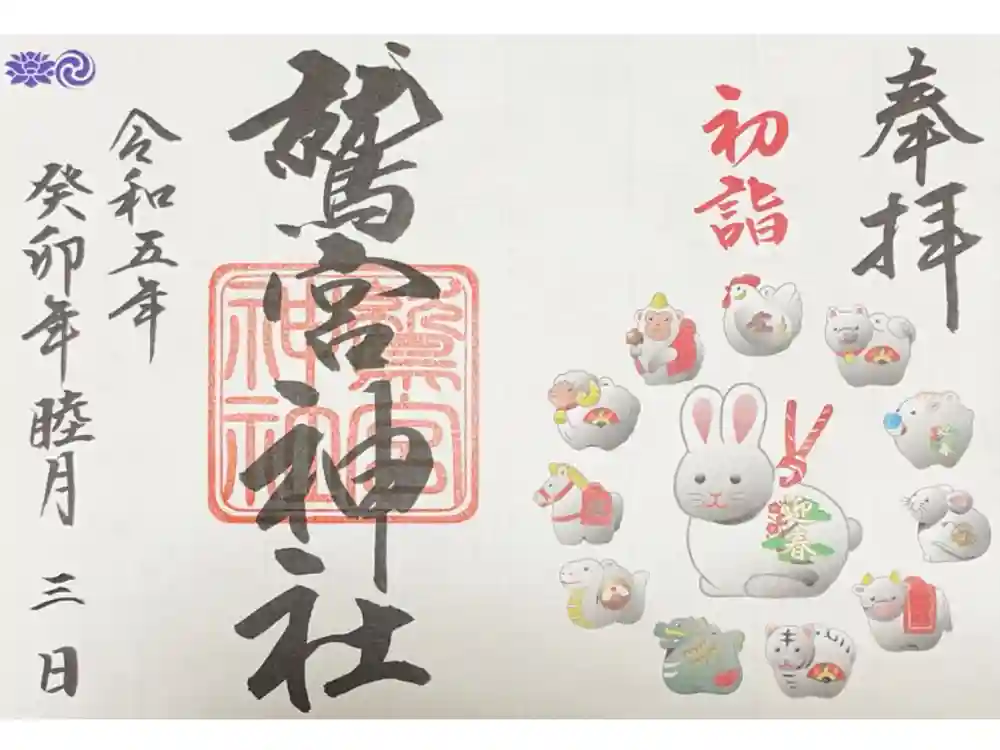 奉拝
初詣
迎春
鷲宮神社
鷲宮
神社
令和五年
癸卯年睦月三日